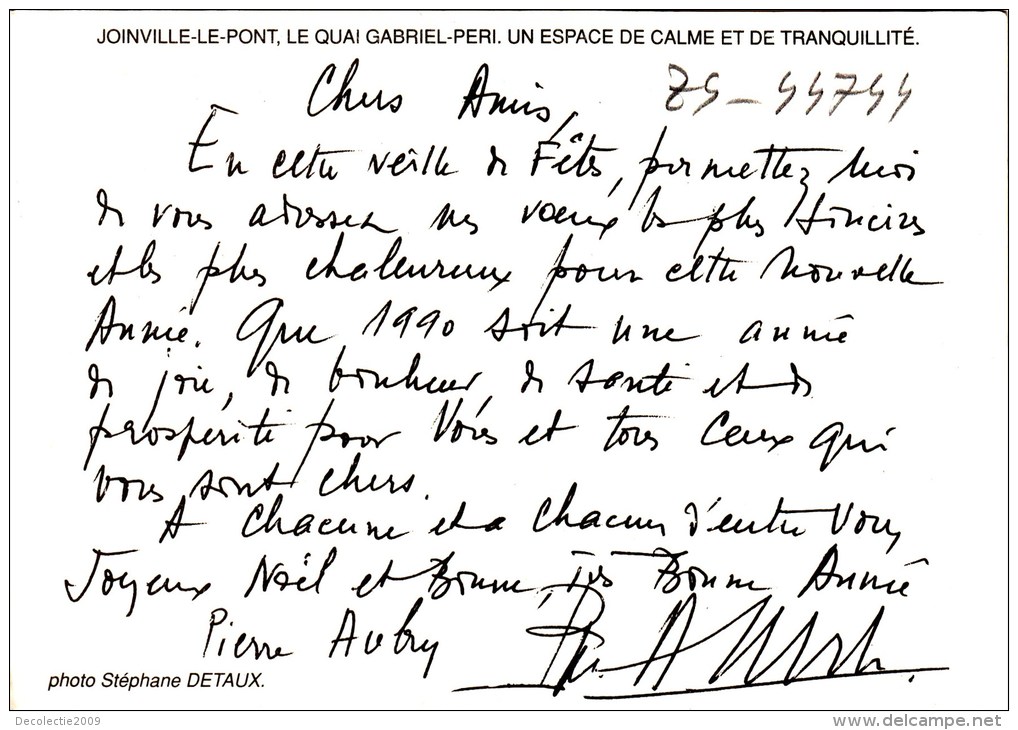 JOINVILLE-LE-PONT, LE QUAI GABRIEL-PERI. UN ESPACE DE CALME ET DE TRANQUILLITÉ.
Chers Amis,
En cette veille de Fêtes, permettez moi
de vous adresser mes vœux les plus sincères
et les plus chaleureux pour cette nouvelle
Année. Que 1990 soit une année
de joie, de bonheur, de santé et de
prospérité pour Vous et tous Ceux qui
vous sont chers.
A chacune et a chacun d'entre Vous
Joyeux Noël et Bonne, très Bonne Année
Pierre Aubry
photo Stéphane DETAUX.
Decolectie2009
www.delcampe.net